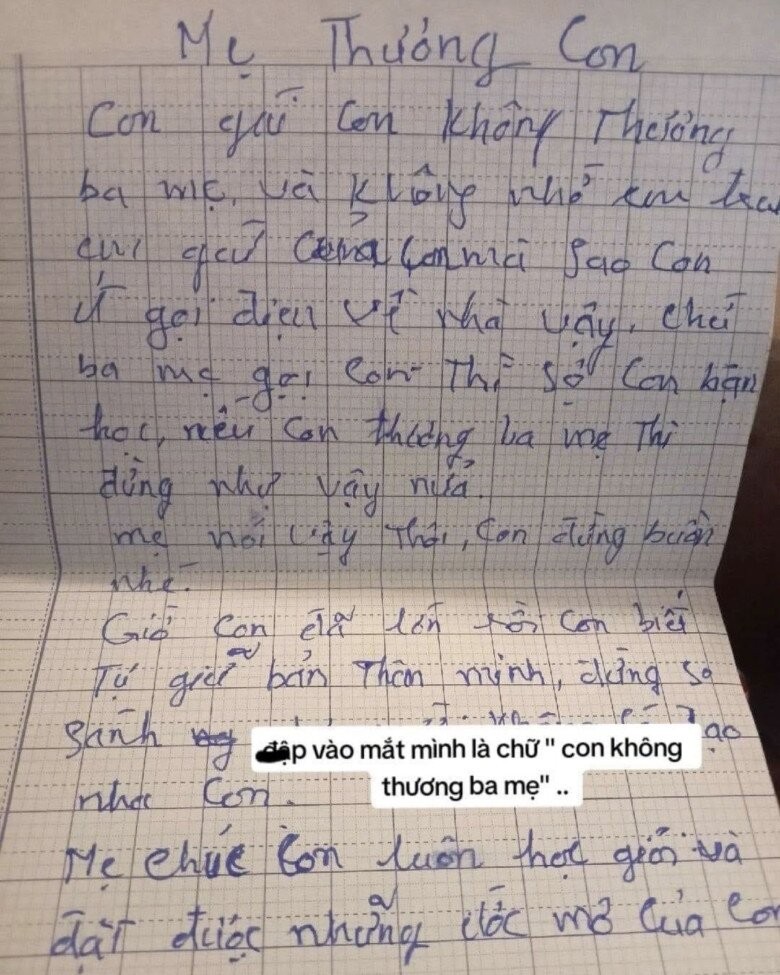 Mẹ Thương Con
Con gái con không Thương
ba mẹ, và không nhớ em trai
em gái của con mà sao con
ít gọi điện về nhà vậy, chứ
ba mẹ gọi con Thì sợ con bận
học, nếu con thương ba mẹ Thì
đừng như vậy nữa.
mẹ nói vậy Thôi, con đừng buồn
nhé.
Giờ con đã lớn rồi con biết
Tự giữ bản Thân mình, đừng so
sánh
đập vào mắt mình là chữ " con không
thương ba mẹ" ..
nhé con.
Mẹ chúc con luôn học giỏi và
đạt được những ước mơ của con